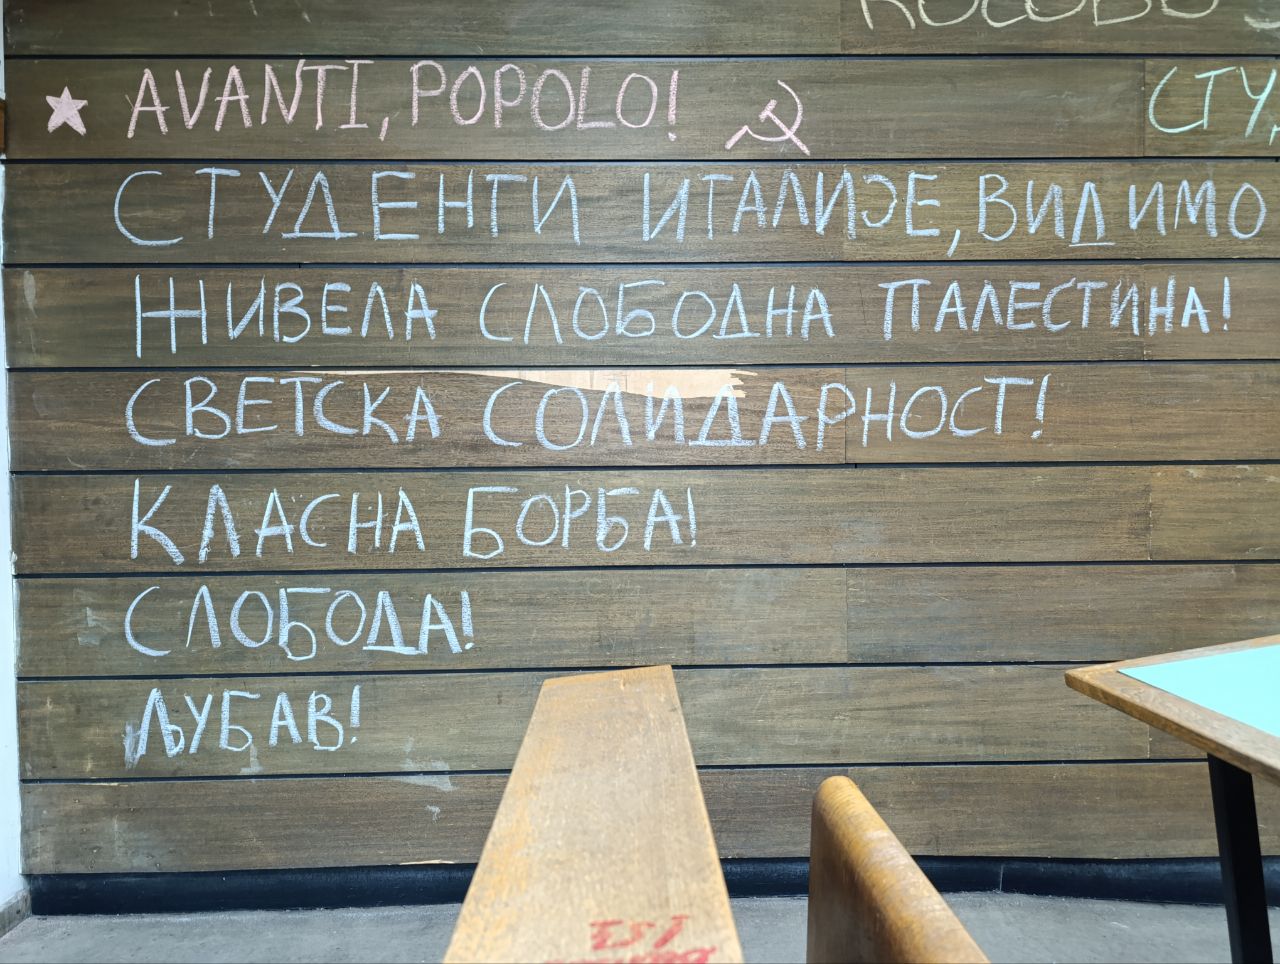 КОСОВО
AVANTI, POPOLO!
СТУ
СТУДЕНТИ ИТАЛИЈЕ, ВИДИМО
ЖИВЕЛА СЛОБОДНА ПАЛЕСТИНА!
СВЕТСКА СОЛИДАРНОСТ!
КЛАСНА БОРБА!
СЛОБОДА!
ЉУБАВ!
EST